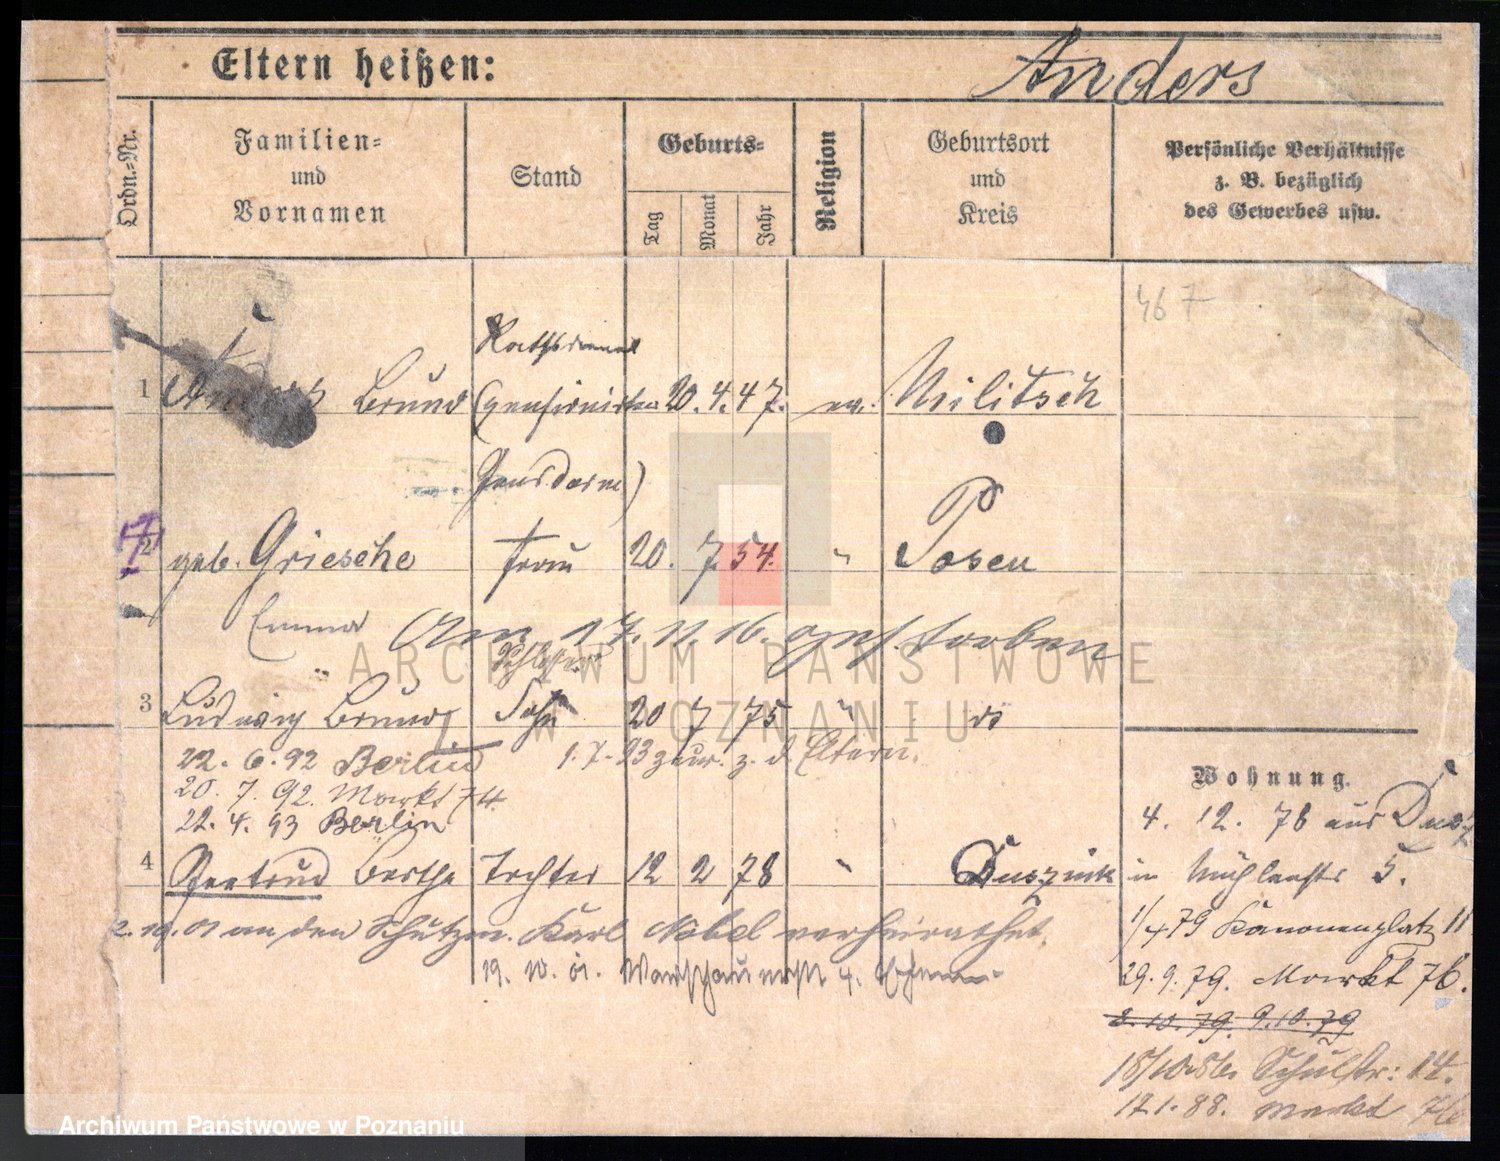 Eltern heißen: Anders
Ordn.-Nr.
Familien=
und
Vornamen
Stand
Geburts=
Tag
Monat
Jahr
Religion
Geburtsort
und
Kreis
Persönliche Verhältnisse
z. B. bezüglich
des Gewerbes usw.
467
Rathsdiener
1 Anders Bruno (pensionirter 20. 4. 47. ev. Militsch
Gensdarm)
2 geb. Griesche Frau 20. 7. 54. " Posen
Emma Am 17. 11. 16. gestorben
Schlosser
3 Ludwig Bruno Sohn 20 7 75 " do
22. 6. 92 Berlin 1. 7. 93 zur. z. d. Eltern.
20. 7. 92. Markt 74
22. 4. 93 Berlin
4 Gertrud Bertha Tochter 12 2 78 " Dusznik
2. 10. 01 an den Schutzm. Karl Nobel verheirathet.
19. 10. 01. 4.
Wohnung.
4. 12. 78 aus Dusz
in Mühlenstr 5.
1/4 79 Kanonenplatz 11
29. 9. 79. Markt 76.
8. 10. 79. 9.10.79
18/10.86. Schulstr: 14.
12 1. 88. Markt 76
ARCHIWUM PAŃSTWOWE
W POZNANIU
Archiwum Państwowe w Poznaniu